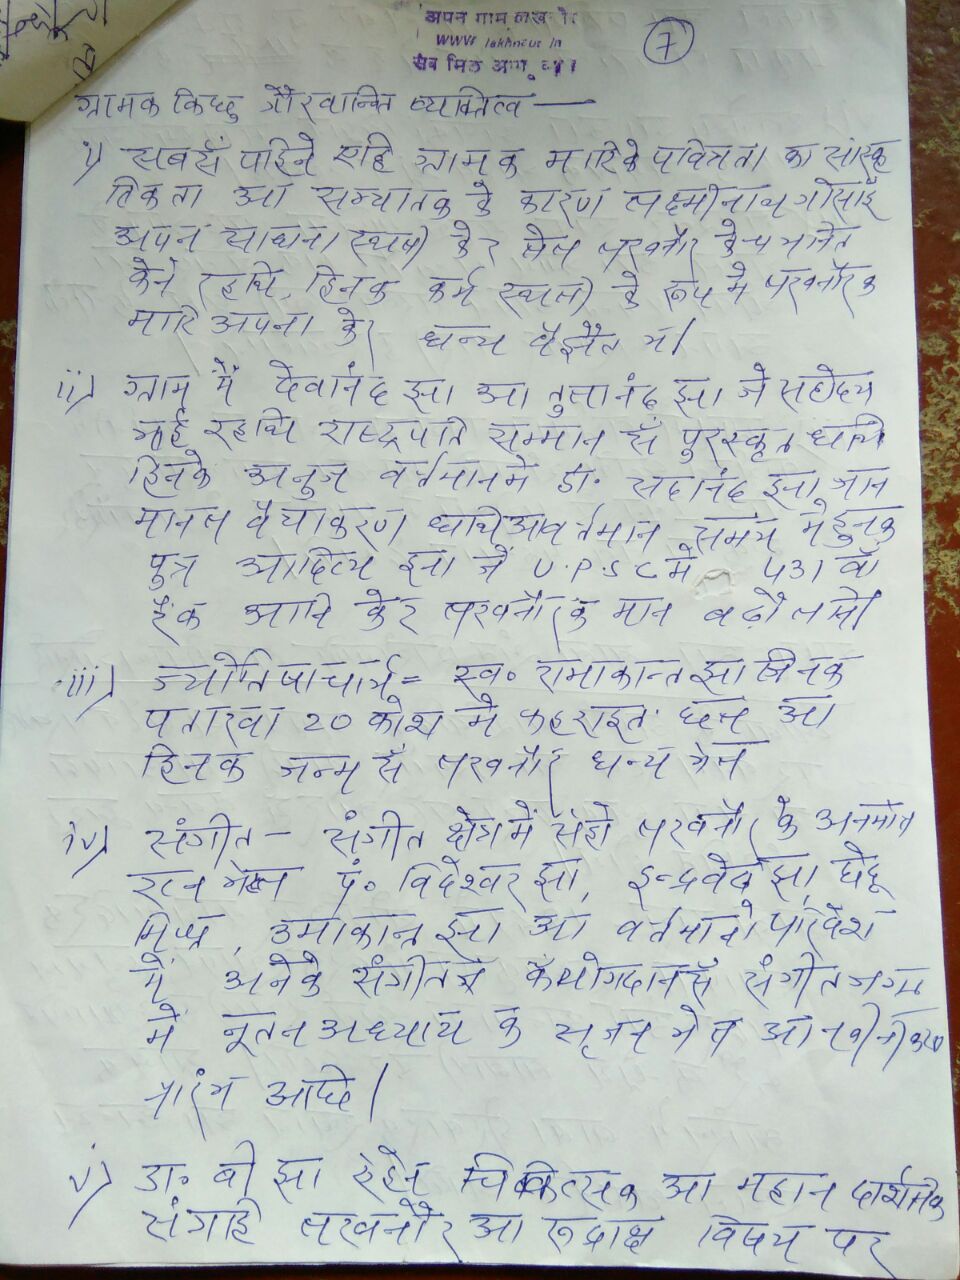 अपन गाम लखनौर
www.lakhnaur.in
सब मिल आगू बढ़ी
7
ग्रामक किछु गौरवान्वित व्यक्तित्व —
i) सबसँ पहिने एहि ग्रामक माटिके पवित्रता का सांस्कृ
तिकता आ सभ्यातक के कारण लक्ष्मीनाथ गोसाईं
अपन साधना स्थली केर लेल लखनौर के
केने रहथि, हिनक कर्म स्थली के रूप मे लखनौरक
माटि अपना केर धन्य बुझैत अ।
ii) ग्राम मे देवानंद झा आ तुलानंद झा जे सहोदर
भाई रहथि राष्ट्रपति सम्मान सँ पुरस्कृत छथि
हिनके अनुज वर्त्तमानमे डॉ. सदानंद झा जान
मानल वैयाकरण छथि आ वर्तमान समय मे हुनक
पुत्र आदित्य झा जे U.P.S.C मे 431 वाँ
रैंक आनि केर लखनौरक मान बढ़ौलनि।
iii) ज्योतिषाचार्य = स्व० रामाकान्त झा जिनक
पताखा 20 कोश मे फहराइत छल आ
हिनक जन्म सँ लखनौर धन्य भेल
iv) संगीत - संगीत क्षेत्र में सेहो लखनौर के अनमोल
रत्न भेल पं० विदेश्वर झा, इन्द्रदेव झा, घेघू
मिश्र, उमाकान्त झा आ वर्तमानो परिवेश
में अनेको संगीतज्ञ के योगदान सँ संगीत जगत
में नूतन अध्याय के सृजन भेल आ नवीनीकरण
प्रारंभ अछि।
v) डा. बी झा सेहन चिकित्सक आ महान दार्शनिक
संगहि लखनौर आ रुद्राक्ष विषय पर